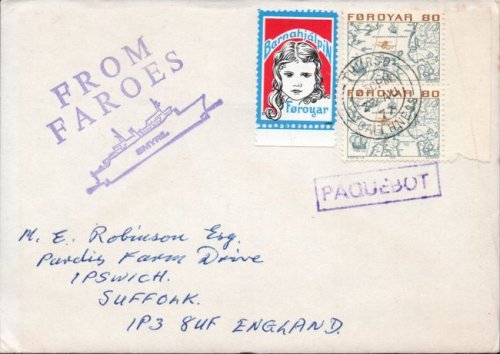 FROM
FAROES
SMYRIL
Barnahjálpin
Føroyar
FØROYAR 80
FØROYAR 80
THURSO
CAITHNESS
PAQUEBOT
M. E. Robinson Esq.
Pardis Farm Drive
IPSWICH.
SUFFOLK.
IP3 8UF ENGLAND.